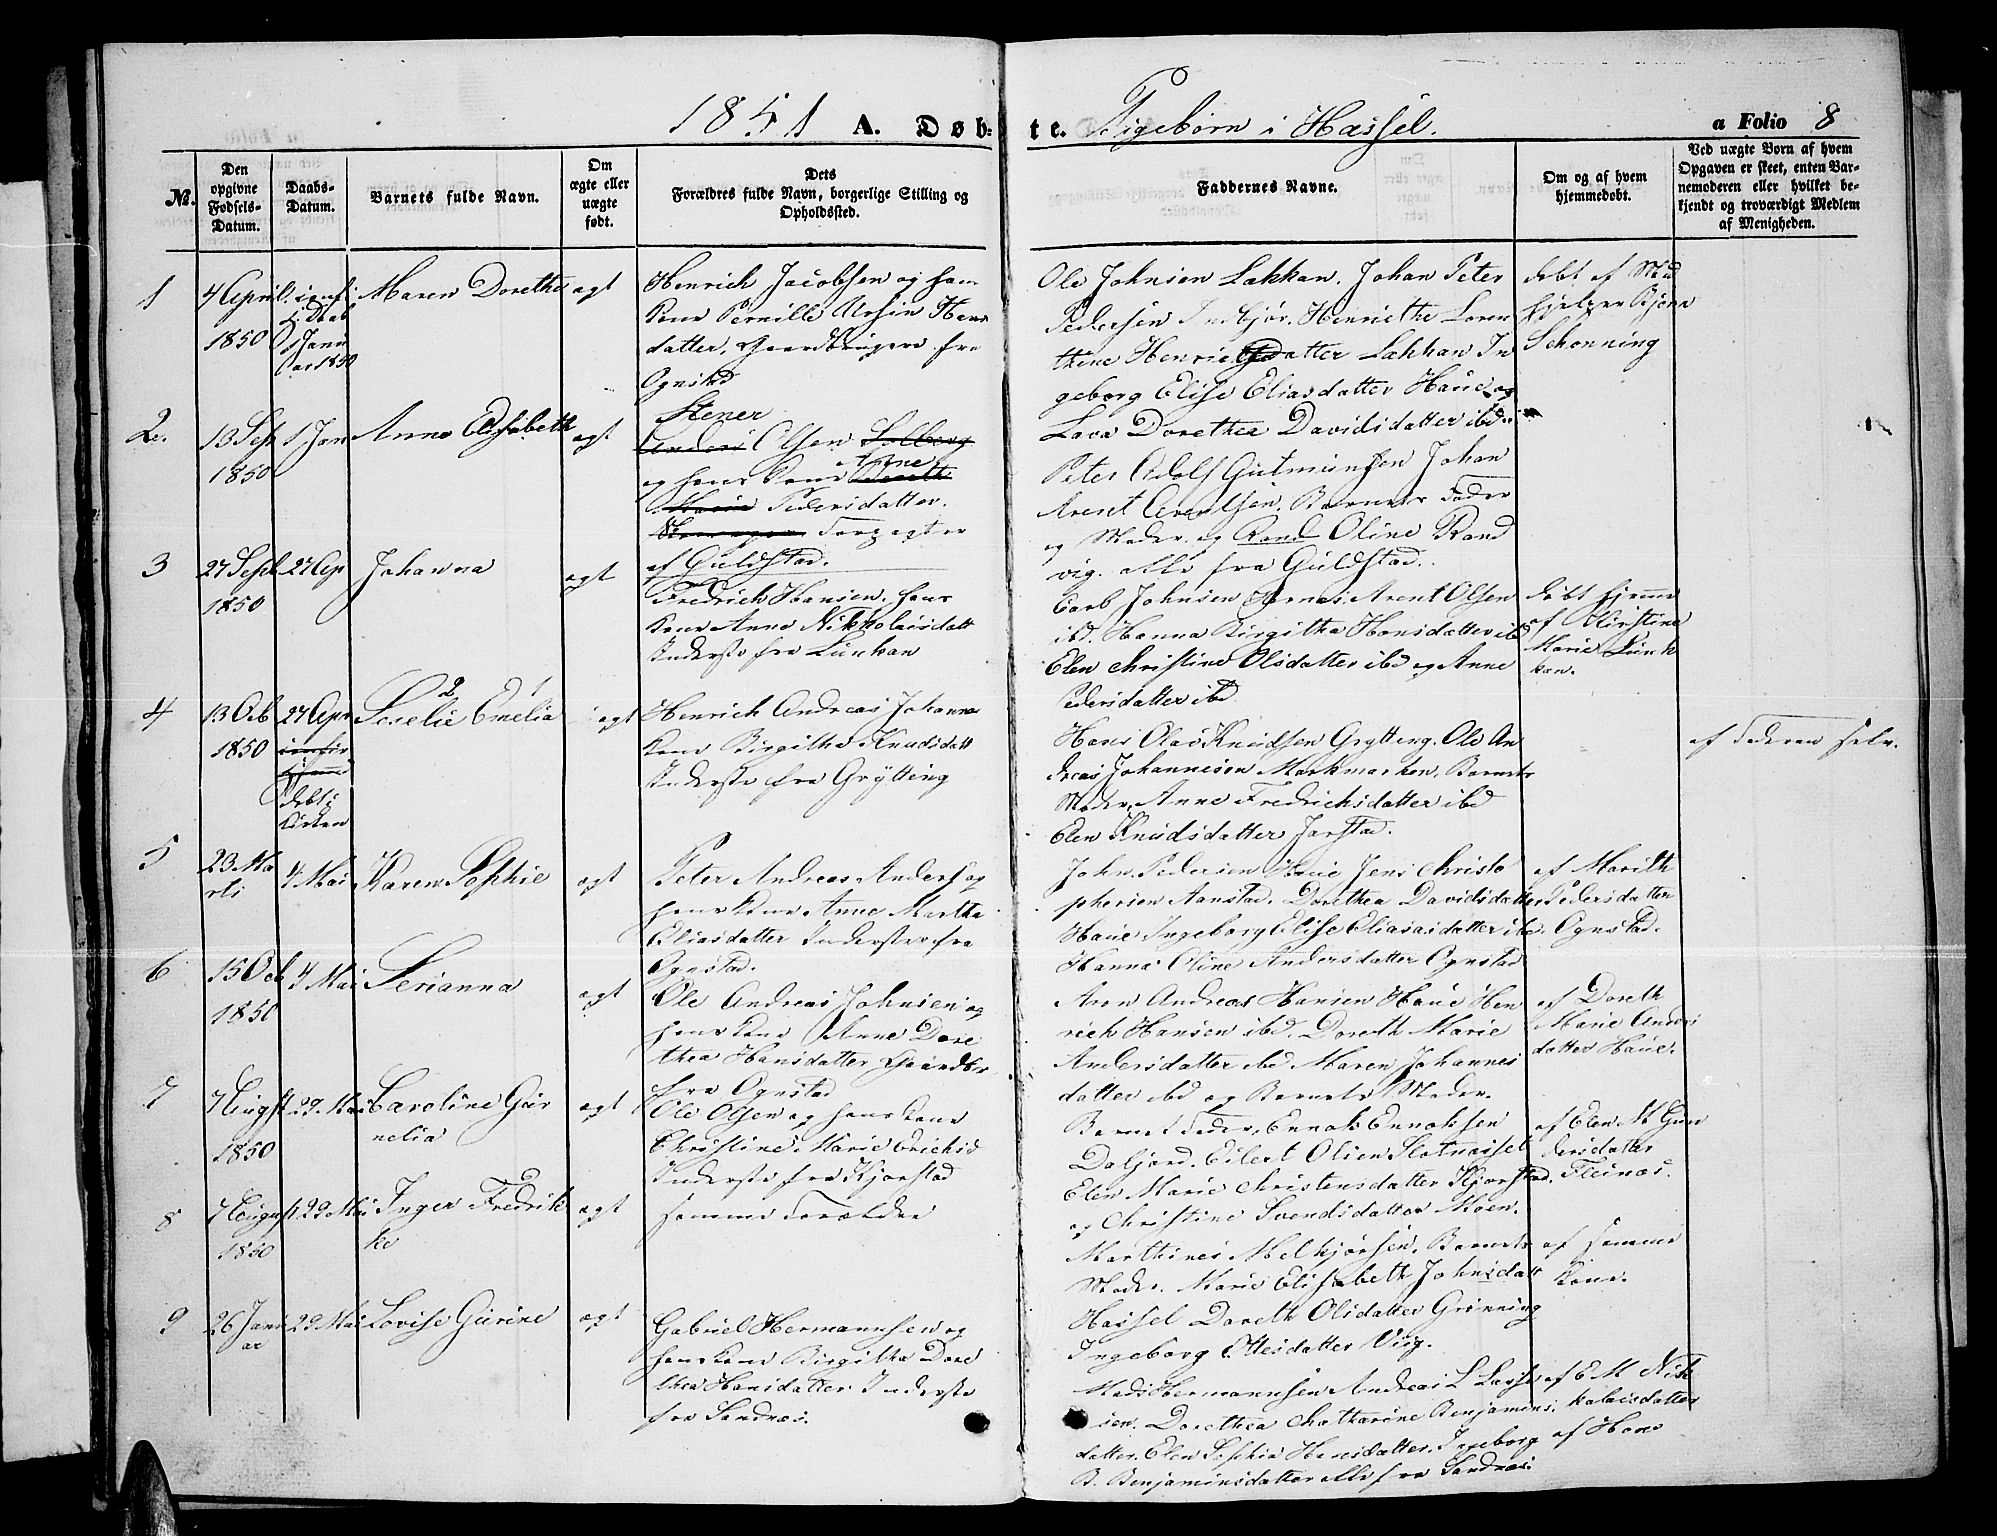 1851 A. Døb-
te. Pigebørn i Hassel.
a Folio 8
No.
Den opgivne Fødsels-Datum.
Daabs-Datum.
Barnets fulde Navn.
Om ægte eller uægte født.
Dets
Forældres fulde Navn, borgerlige Stilling og
Opholdssted.
Faddernes Navne.
Om og af hvem
hjemmedøbt.
Ved uægte Born af hvem
Opgaven er skeet, enten Bar-
nemoderen eller hvilket be-
kjendt og troværdigt Medlem
af Menigheden.
1
4 April
1850
Daab
1 Janu
ar 1850
Maren Dorethe
ægt
Henrich Jacobsen og hans
Kone Pernille Ursin Hans
datter, Gaardbrugere fra
Ognstad
Ole Johnsen Lakkan. Johan Peter
Pedersen Indbjør. Henriethe Loren
thine Henrichsdatter Lakkan In
geborg Elise Eliasdatter Haue og
Lava Dorethea Davidsdatter ibd.
døbt af Med
hjelper Bjønn
Schonning
2.
13 Sep
1850
1 Jan
Anne Elisabeth
ægt
Stener
Anders Olsen Solberg
Anne
og hans Kone Dorethe
Marie Pedersdatter.
Forpagter
af Guldstad.
Peter Adolf Gutmunsen Johan
Arent Arentsen. Barnets Fader
og Moder og Rand Oline Rand
vig. alle fra Guldstad.
3
27 Sept
1850
27 Ap
Johanna
ægt
Fredrich Hansen. hans
Kone Anne Nikkolaisdatt
Inderste fra Lunkan
Carb Johnsen Hornes Arent Olsen
ibd. Hanna Birgitha Hansdatter ibd
Elen Christine Olsdatter ibd og Anne
Pedersdatter ibd
døbt hjemme
af Kirstine
Marie Lunk
kan.
4
13 Oct
1850
27 Apr
døbt i
Kirken
Serelie Emelia
ægt
Henrich Andreas Johanne
Kone Birgitha Knudsdatt
Inderste fra Grytting
Hans Olai Knudsen Grytting. Ole An
dreas Johannesen Markmarken. Barnets
Moder, Anne Fredrichsdatter ibd
Elen Knudsdatter Jarstad.
af Faderen selv.
5
23 Ma
rti
4 Mai
Karen Sophie
ægt
Peter Andreas Anders og
hans Kone Anne Martha
Eliasdatter Inderster fra
Ognstad.
John Pedersen Haue Jens Christo
phersen Aanstad. Dorethea Davidsdatter
Haue Ingeborg Elise Eliasdatter ibd.
Hanna Oline Andersdatter Ognstad
af Marith
Pedersdatter
Ognstad.
6
15 Oct
1850
4 Mai
Serianna
ægt
Ole Andreas Johnsen og
hans Kone Anne Dore
thea Hansdatter Gaardbr
fra Ognstad
Aron Andreas Hansen Haue Hen
rich Hansen ibd. Doreth Marie
Andersdatter ibd Maren Johannes
datter ibd og Barnets Moder.
af Doreth
Marie Anders
datter Haue.
7
7 Augst
1850
29 Mai
Caroline Gur
nelia
ægt
Ole Olsen og hans Kone
Christine Marie Erichsd
Inderste fra Kjørstad
Barnets Fader, Ennok Ennoksen
Daljord. Eilert Olsen Slotnæsset
Elen Marie Christensdatter Kjørstad.
og Christine Svendsdatter Moen.
af Elen M Gun
dersdatter
Fleinæs.
8
7 August
1850
29 Mai
Inger Fredrik
ke
ægt
samme Forældre
Marthines Melkjørsen. Barnets
Moder. Marie Elisabeth Johnsdatt
Hassel Doreth Olsdatter Grønning
Ingeborg Ottesdatter Vig.
af samme
Kone.
9
26 Janu
ar
29 Mai
Lovise Gurine
ægt
Gabriel Hermannsen og
hans Kone Birgitha Dore
thea Hansdatter. Inderste
fra Sandnæs.
Mads Hermannsen Andreas L Lars
sen. Dorethea Chatharine Benjamins
datter. Elen Sophia Hansdatter. Ingeborg
B. Benjaminsdatter alle fra Sandnæs.
af E M Nik
kolaisdatter
af Hans